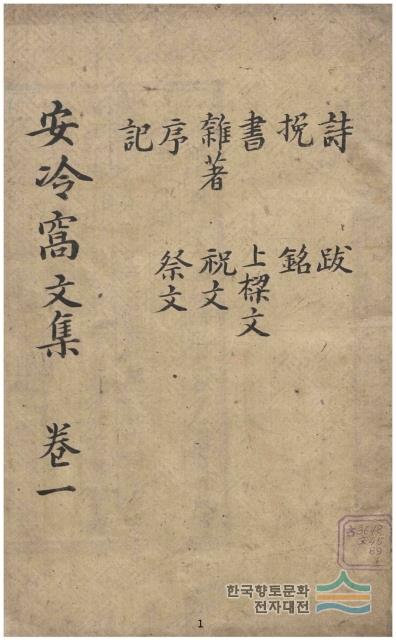 詩 跋
挽 銘
書 上樑文
雜著 祝文
序 祭文
記
安冷窩文集 卷一
한국향토문화
전자대전
1